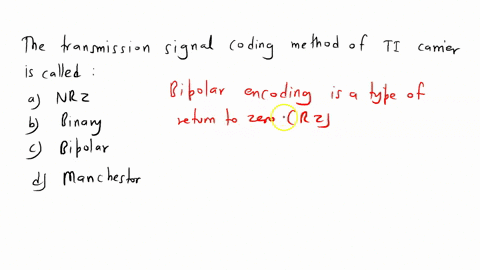 The transmission signal coding method of TI carrier
is called :
a) NRZ
b) Binary
c) Bipolar
d) Manchestor
Bipolar encoding is a type of
return to zero . (RZ)